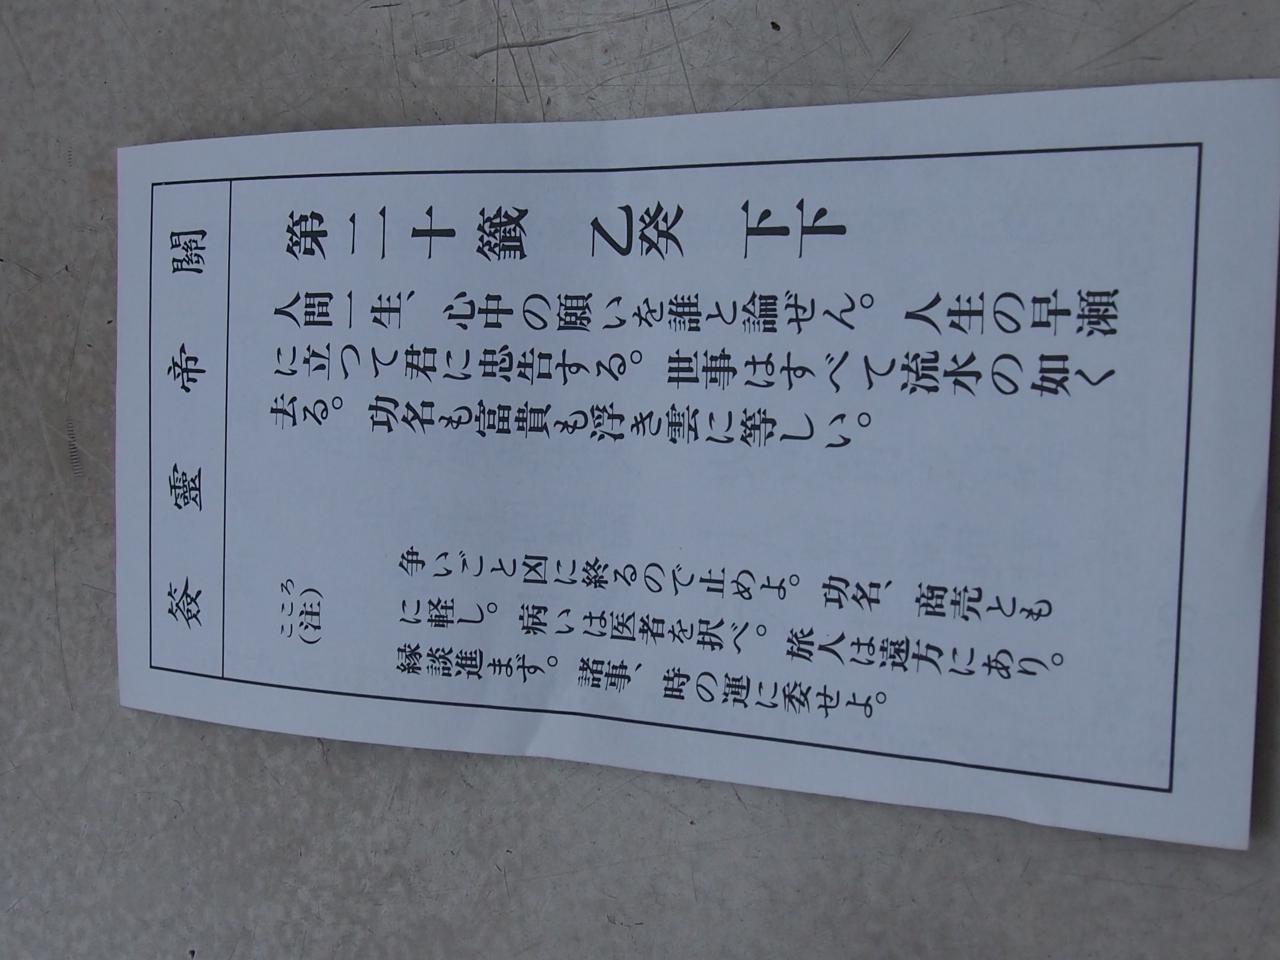 關帝靈簽
第二十籤　乙癸　下下
人間一生、心中の願いを誰と論ぜん。人生の早瀬
に立つて君に忠告する。世事はすべて流水の如く
去る。功名も富貴も浮き雲に等しい。
こころ
（注）
争いごと凶に終るので止めよ。功名、商売とも
に軽し。病いは医者を択べ。旅人は遠方にあり。
縁談進まず。諸事、時の運に委せよ。